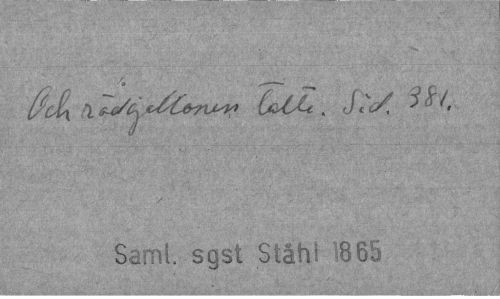 Och rådgjettonen Tatti. Sid. 381.
Saml. sgst Ståhl 1865